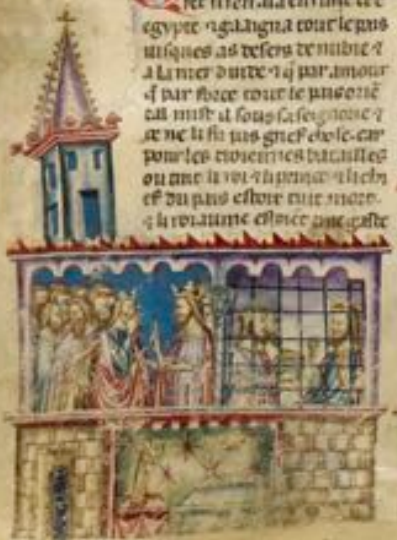 egypte ⁊ gaaigna tout le pais
iusques as desers de nubie ⁊
a la mer dinde ⁊ q̃ par amour
q̃ par force tout le pais oriē
tal mist il sous sa seignorie ⁊
ce ne li fu pas grief chose car
pour les troienies batailles
ou tuit li roi ⁊ li prince ⁊ li chi
ef du pais estoiēt tuit mort
⁊ li roiaume estoiēt tuit gaste